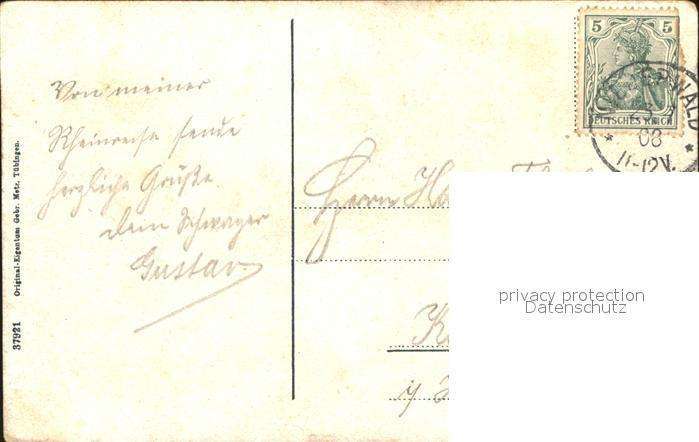 Von meiner
Rheinreise sende
herzliche Grüße
dein Schwager
Gustav.
Original-Eigentum Gebr. Metz, Tübingen.
37921
5 5
DEUTSCHES REICH
08
11-12V.
Herrn
privacy protection
Datenschutz